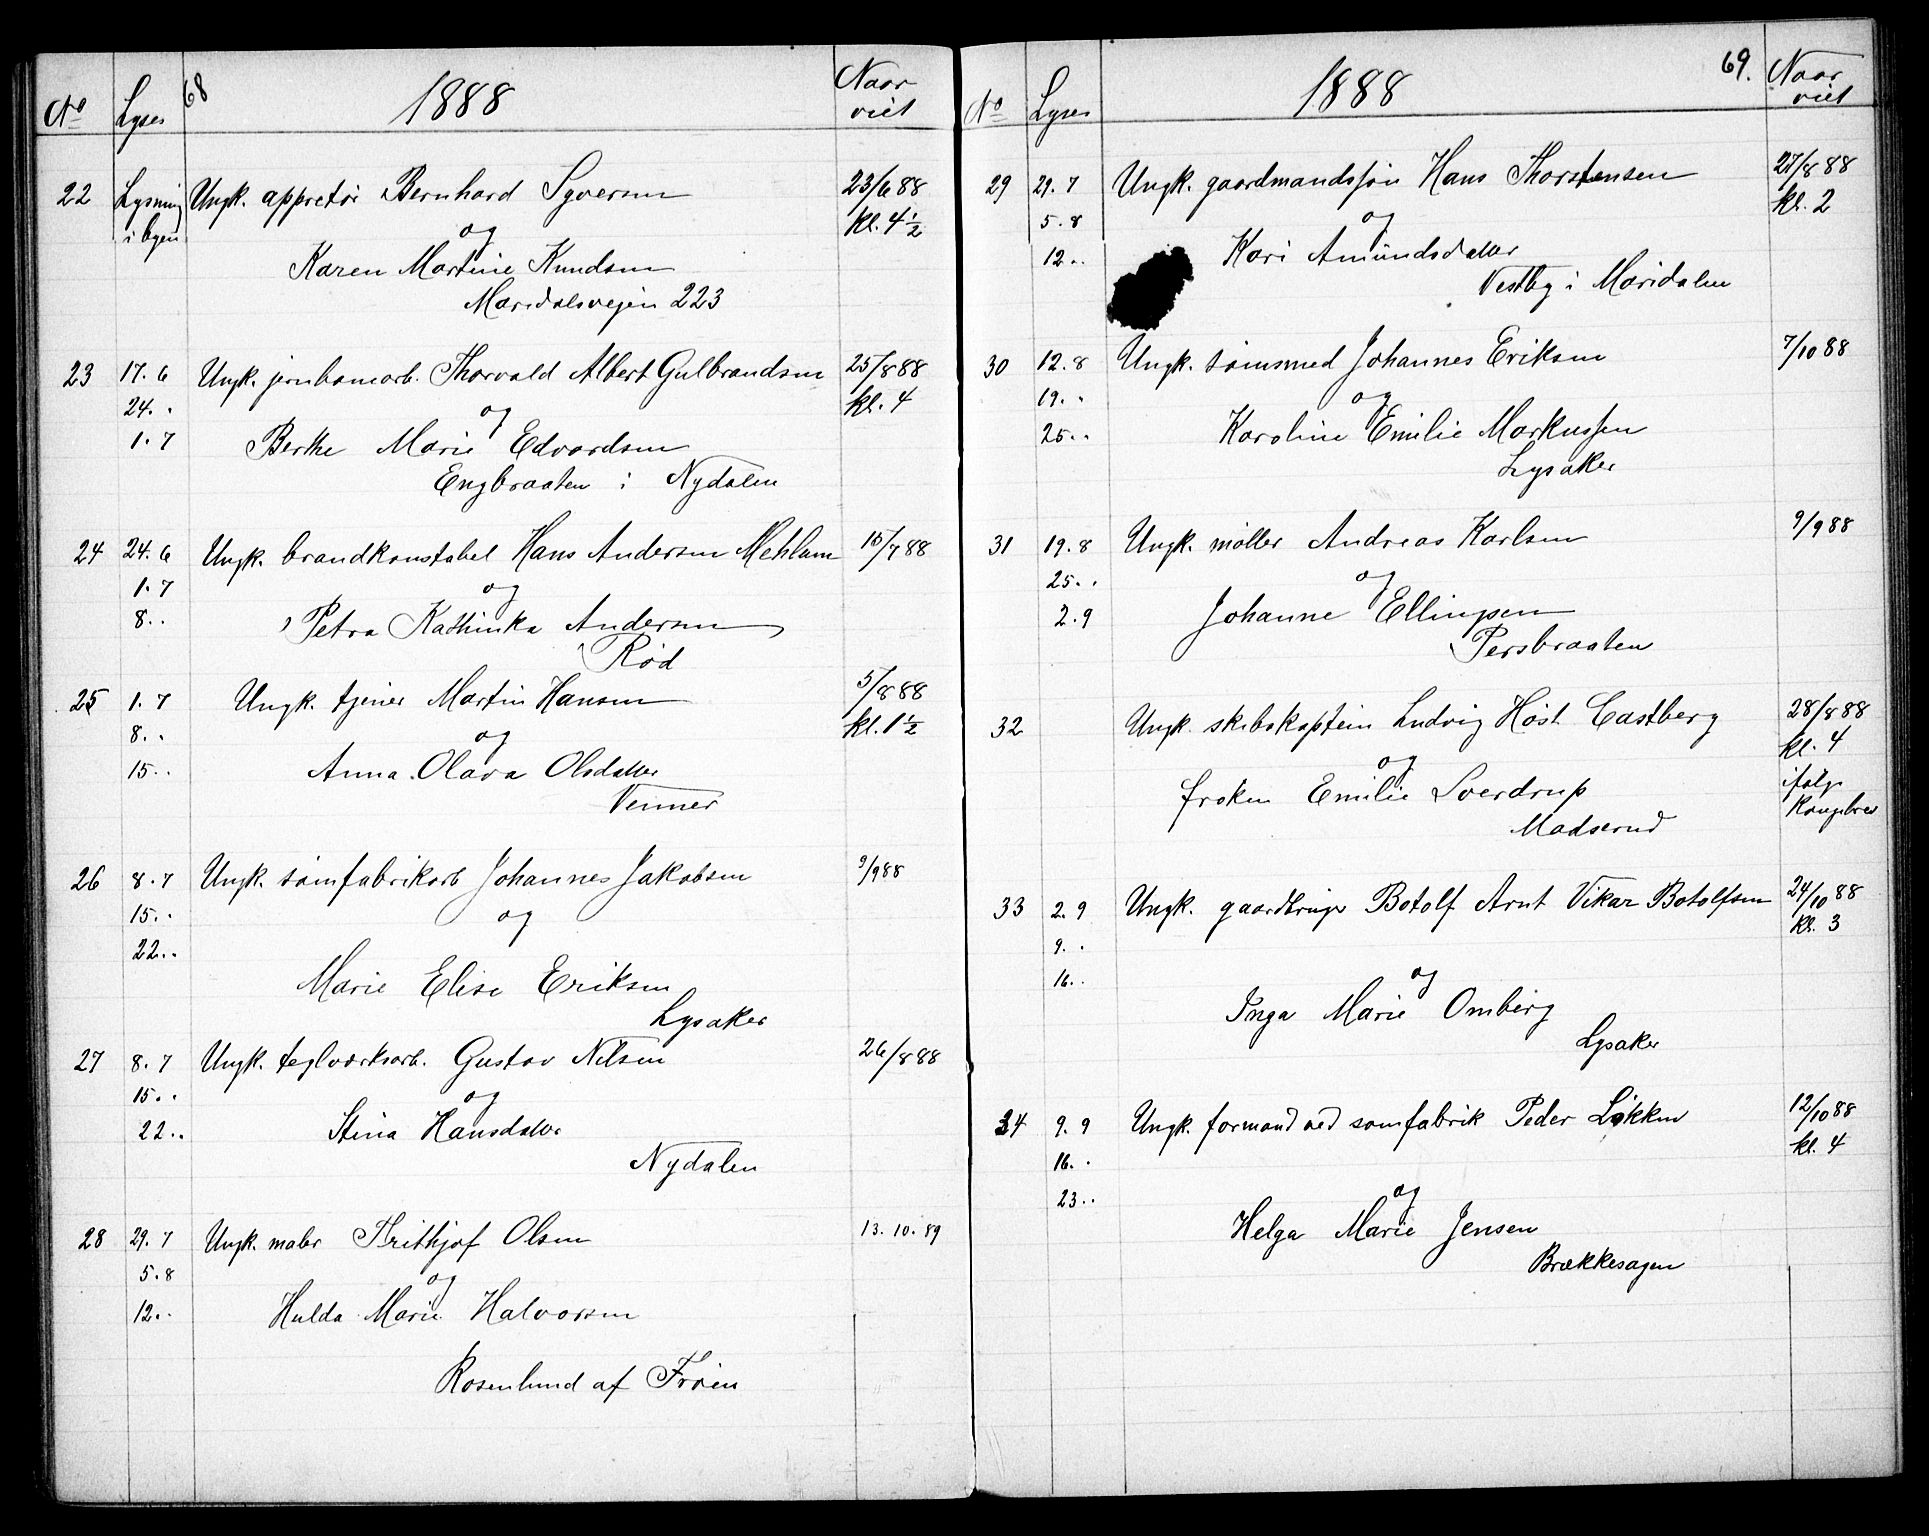 68
1888
No Lyses Naar viet
22 Lysning i byen Ungk. appretør Bernhard Syversen 23/6 88
og kl. 4 1/2
Karen Martine Knudsen
Maridalsvejen 223
23 17.6 Ungk. jernbanearb. Thorvald Albert Gulbrandsen 25/8 88
24. " og kl. 4
1.7 Berthe Marie Edvardsen
Engbraaten i Nydalen
24 24.6 Ungk. brandkonstabel Hans Andersen Mehlum 15/7 88
1.7 og
8. " Petra Kathinka Andersen
Rød
25 1.7 Ungk. tjener Martin Hansen 5/8 88
8. " og kl. 1 1/2
15. " Anna Olava Olsdatter
Venner
26 8.7 Ungk. sømfabrikarb Johannes Jakobsen 9/9 88
15. " og
22. "
Marie Elise Eriksen
Lysaker
27 8.7 Ungk. teglværksarb. Gustav Nilsen 26/8 88
15. " og
22. " Stina Hansdatter
Nydalen
28 29.7 Ungk. maler Frithjof Olsen 13.10.89
5.8 og
12. " Hulda Marie Halvorsen
Rosenlund af Frøen
69.
1888
No Lyses Naar viet
29 29.7 Ungk. gaardmandssøn Hans Thorstensen 27/8 88
5.8 og kl. 2
12. " Kari Amundsdatter
Vestby i Maridalen
30 12.8 Ungk. sømsmed Johannes Eriksen 7/10 88
19. " og
25. " Karoline Emilie Markussen
Lysaker
31 19.8 Ungk. møller Andreas Karlsen 9/9 88
25. " og
2.9 Johanne Ellingsen
Persbraaten
32 Ungk. skibskaptein Ludvig Høst Castberg 28/8 88
og kl. 4
frøken Emilie Sverdrup ifølge
Madserud Kongebrev
33 2.9 Ungk. gaardbruger Botolf Arnt Vikar Botolfsen 24/10 88
9. " kl. 3
16. " og
Inga Marie Omberg
Lysaker
34 9.9 Ungk. formand ved sømfabrik Peder Løkken 12/10 88
16. " kl. 4
23. " og
Helga Marie Jensen
Brækkesagen